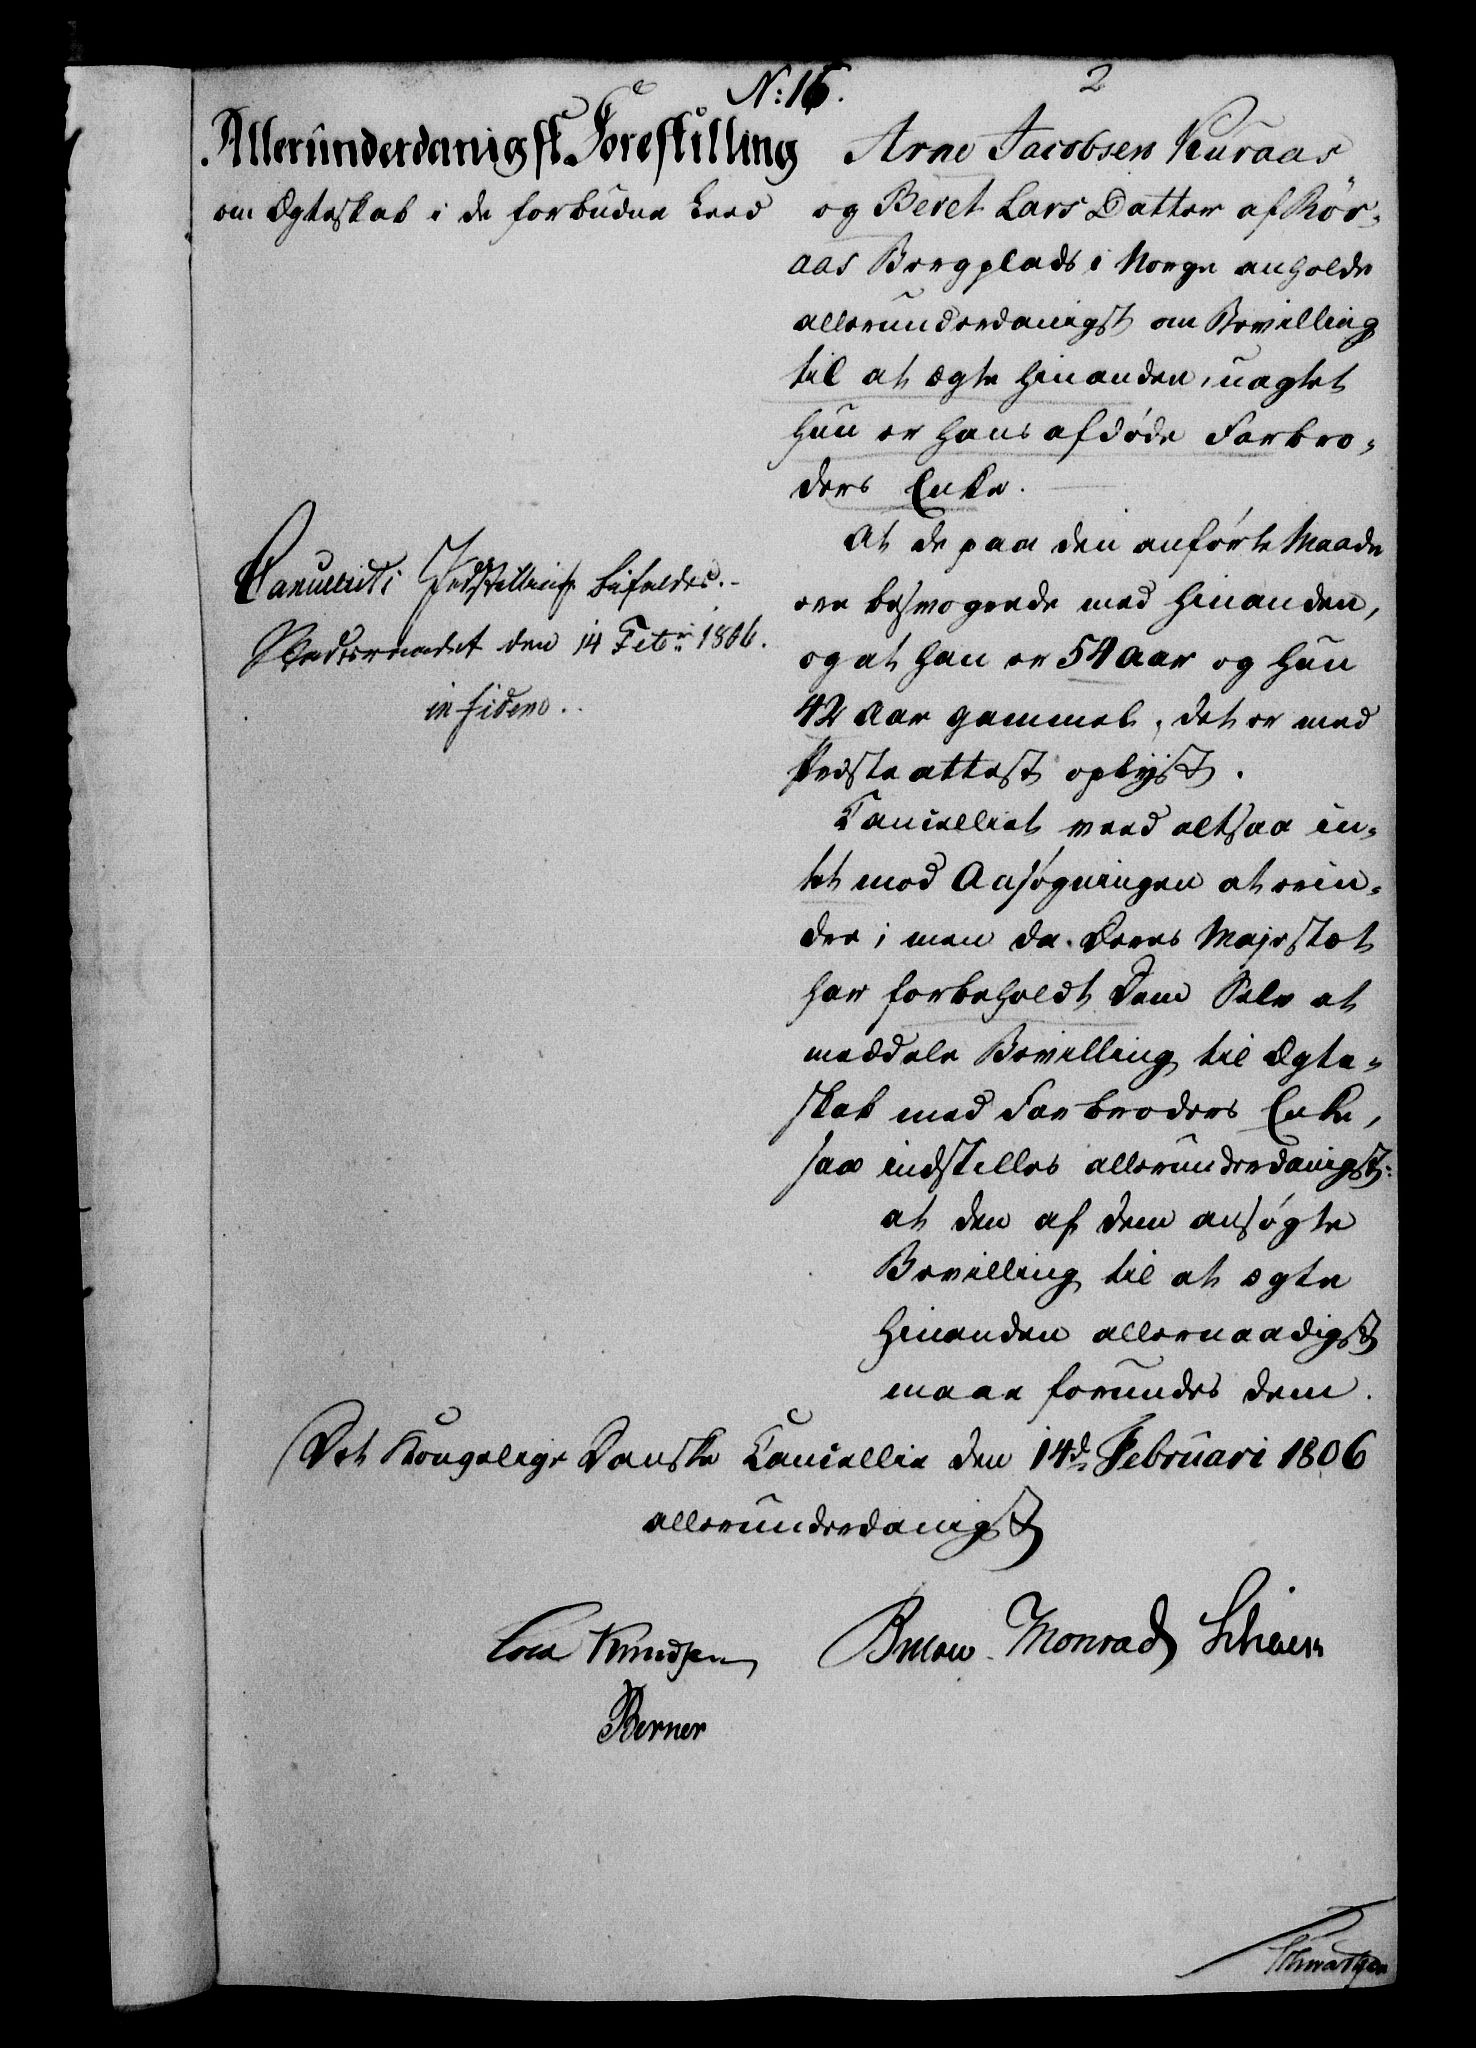 N: 16.
2
Allerunderdanigst Forestilling
om Ægteskab i de forbudne Leed
Arne Jacobsen Kuraas
og Beret Lars Datter af Rör-
aas Bergplads i Norge anholde
allerunderdanigst om Bevilling
til at ægte hinanden, uagtet
hun er hans afdøde Farbro-
ders Enke.
At de paa den anførte Maade
ere besvogrede med hinanden,
og at han er 54 Aar og hun
42 Aar gammel, det er med
Præsteattest oplyst.
Cancelliet veed altsaa in-
tet mod Ansøgningen at erin-
dre; men da Deres Majestæt
har forbeholdt Dem Selv at
meddele Bevilling til Ægte-
skab med Farbroders Enke,
saa indstilles allerunderdanigst:
at den af dem ansøgte
Bevilling til at ægte
hinanden allernaadigst
maae forundes dem.
Cancelliets Indstilling bifaldes.
den 14 Febr 1806.
in fidem.
Det Kongelige Danske Cancellie den 14d Februari 1806
allerunderdanigst
Cold Knudsen Bülow Monrad
Berner